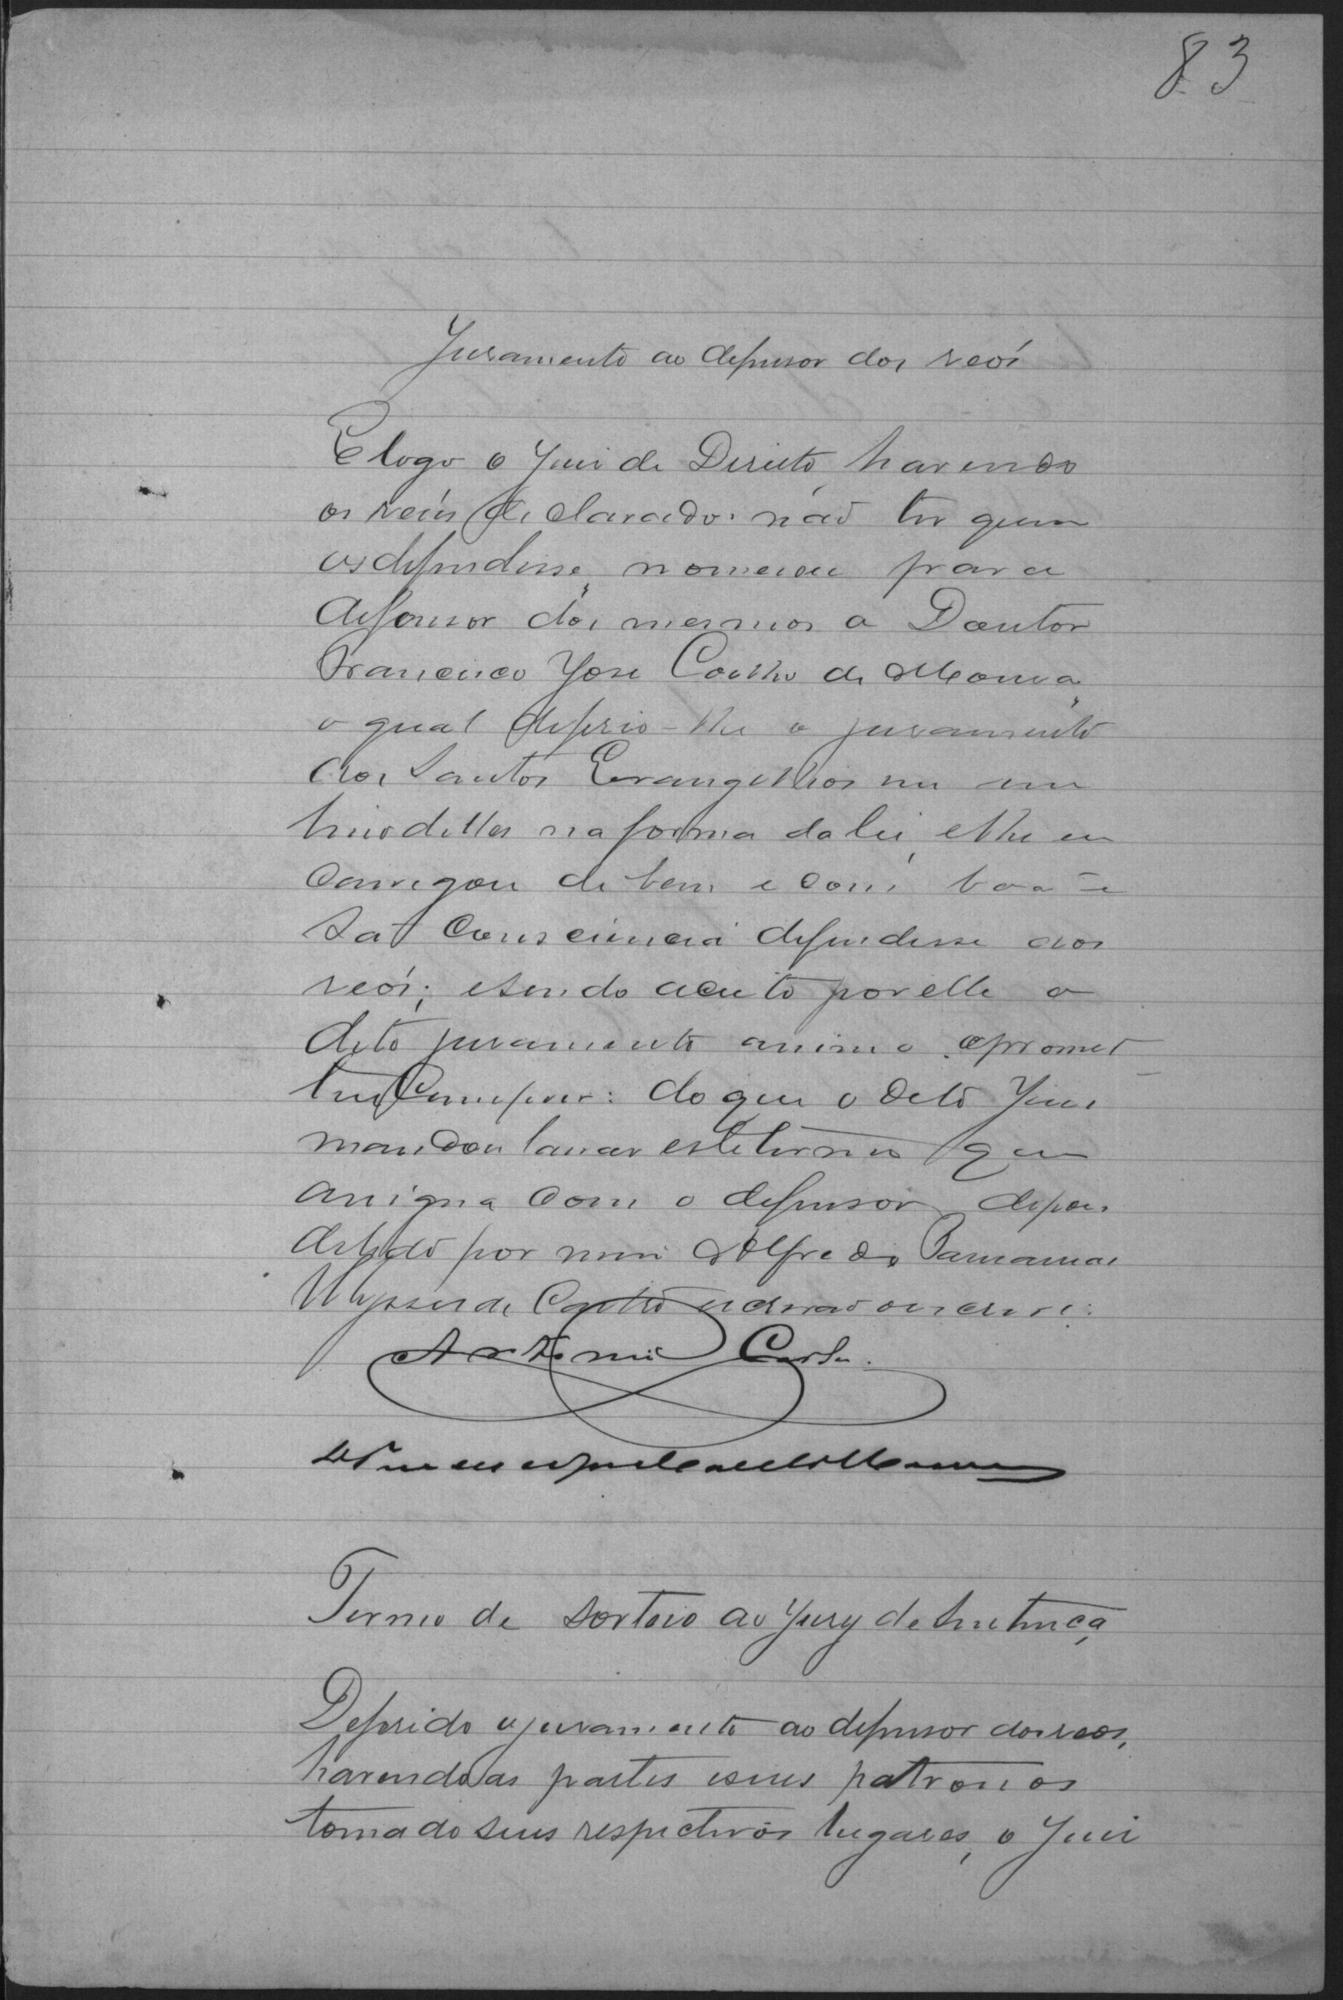 83
Juramento ao defensor dos reos
E logo o Juiz de Direito, havendo
os reus declarado não ter quem
os defendesse, nomeou para
defensor dos mesmos o Doutor
Francisco José Coelho de Moura,
o qual deferio-lhe o juramento
dos Santos Evangelhos em um
livro delles na forma da lei, e lhe en
carregou de bem e com boa e
sã consciencia defendesse aos
reos; e sendo aceito por elle o
dito juramento assim o promet
teu cumprir: do que o dito Juiz
mandou lavrar este termo que
assigna com o defensor, depois
de lido por mim Alfredo
Ulysses de Castro escrivão o escrevi.
Antonio
Francisco José Coelho de Moura
Termo de sorteio do Jury de Sentença
Deferido o juramento ao defensor dos reos,
havendo as partes e seus patronos
tomado seus respectivos lugares, o Juiz